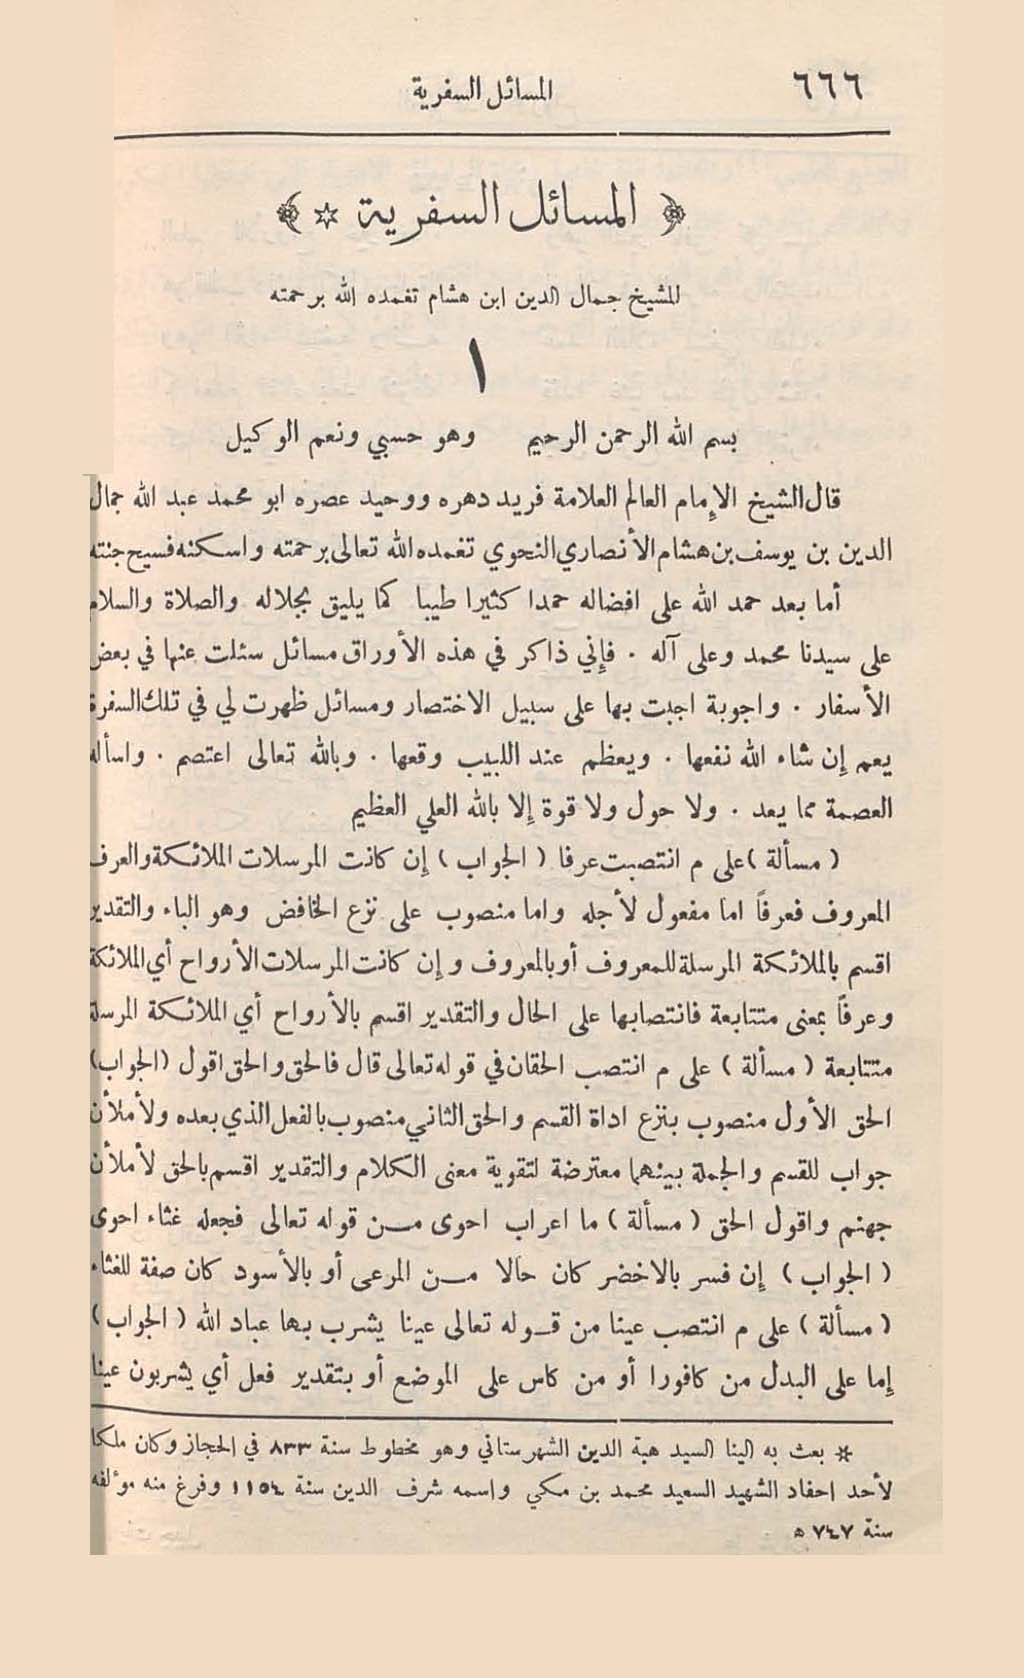 ٦٦٦
المسائل السفرية
﴿ المسائل السفرية * ﴾
للشيخ جمال الدين ابن هشام تغمده الله برحمته
١
بسم الله الرحمن الرحيم وهو حسبي ونعم الوكيل
قال الشيخ الإمام العالم العلامة فريد دهره ووحيد عصره ابو محمد عبد الله جمال
الدين بن يوسف بن هشام الأنصاري النحوي تغمده الله تعالى برحمته واسكنه فسيح جنته
أما بعد حمد الله على افضاله حمدا كثيرا طيبا كما يليق بجلاله والصلاة والسلام
على سيدنا محمد وعلى آله . فإني ذاكر في هذه الأوراق مسائل سئلت عنها في بعض
الأسفار . واجوبة اجبت بها على سبيل الاختصار ومسائل ظهرت لي في تلك السفرة
يعم إن شاء الله نفعها . ويعظم عند اللبيب وقعها . وبالله تعالى اعتصم . واسأله
العصمة مما يعد . ولا حول ولا قوة إلا بالله العلي العظيم
( مسألة ) على م انتصبت عرفا ( الجواب ) إن كانت المرسلات الملائكة والعرف
المعروف فعرفاً اما مفعول لأجله واما منصوب على نزع الخافض وهو الباء والتقدير
اقسم بالملائكة المرسلة للمعروف أو بالمعروف وإن كانت المرسلات الأرواح أي الملائكة
وعرفاً بمعنى متتابعة فانتصابها على الحال والتقدير اقسم بالأرواح أي الملائكة المرسلة
متتابعة ( مسألة ) على م انتصب الحقان في قوله تعالى قال فالحق والحق اقول (الجواب)
الحق الأول منصوب بنزع اداة القسم والحق الثاني منصوب بالفعل الذي بعده ولأملأن
جواب للقسم والجملة بينهما معترضة لتقوية معنى الكلام والتقدير اقسم بالحق لأملأن
جهنم واقول الحق ( مسألة ) ما اعراب احوى من قوله تعالى فجعله غثاء احوى
( الجواب ) إن فسر بالاخضر كان حالا من المرعى أو بالأسود كان صفة للغثاء
( مسألة ) على م انتصب عينا من قوله تعالى عينا يشرب بها عباد الله ( الجواب )
إما على البدل من كافورا أو من كاس على الموضع أو بتقدير فعل أي يشربون عينا
* بعث به الينا السيد هبة الدين الشهرستاني وهو مخطوط سنة ٨٣٣ في الحجاز وكان ملكا
لأحد احفاد الشهيد السعيد محمد بن مكي واسمه شرف الدين سنة ١١٥٤ وفرغ منه مؤلفه
سنة ٧٤٧ ه